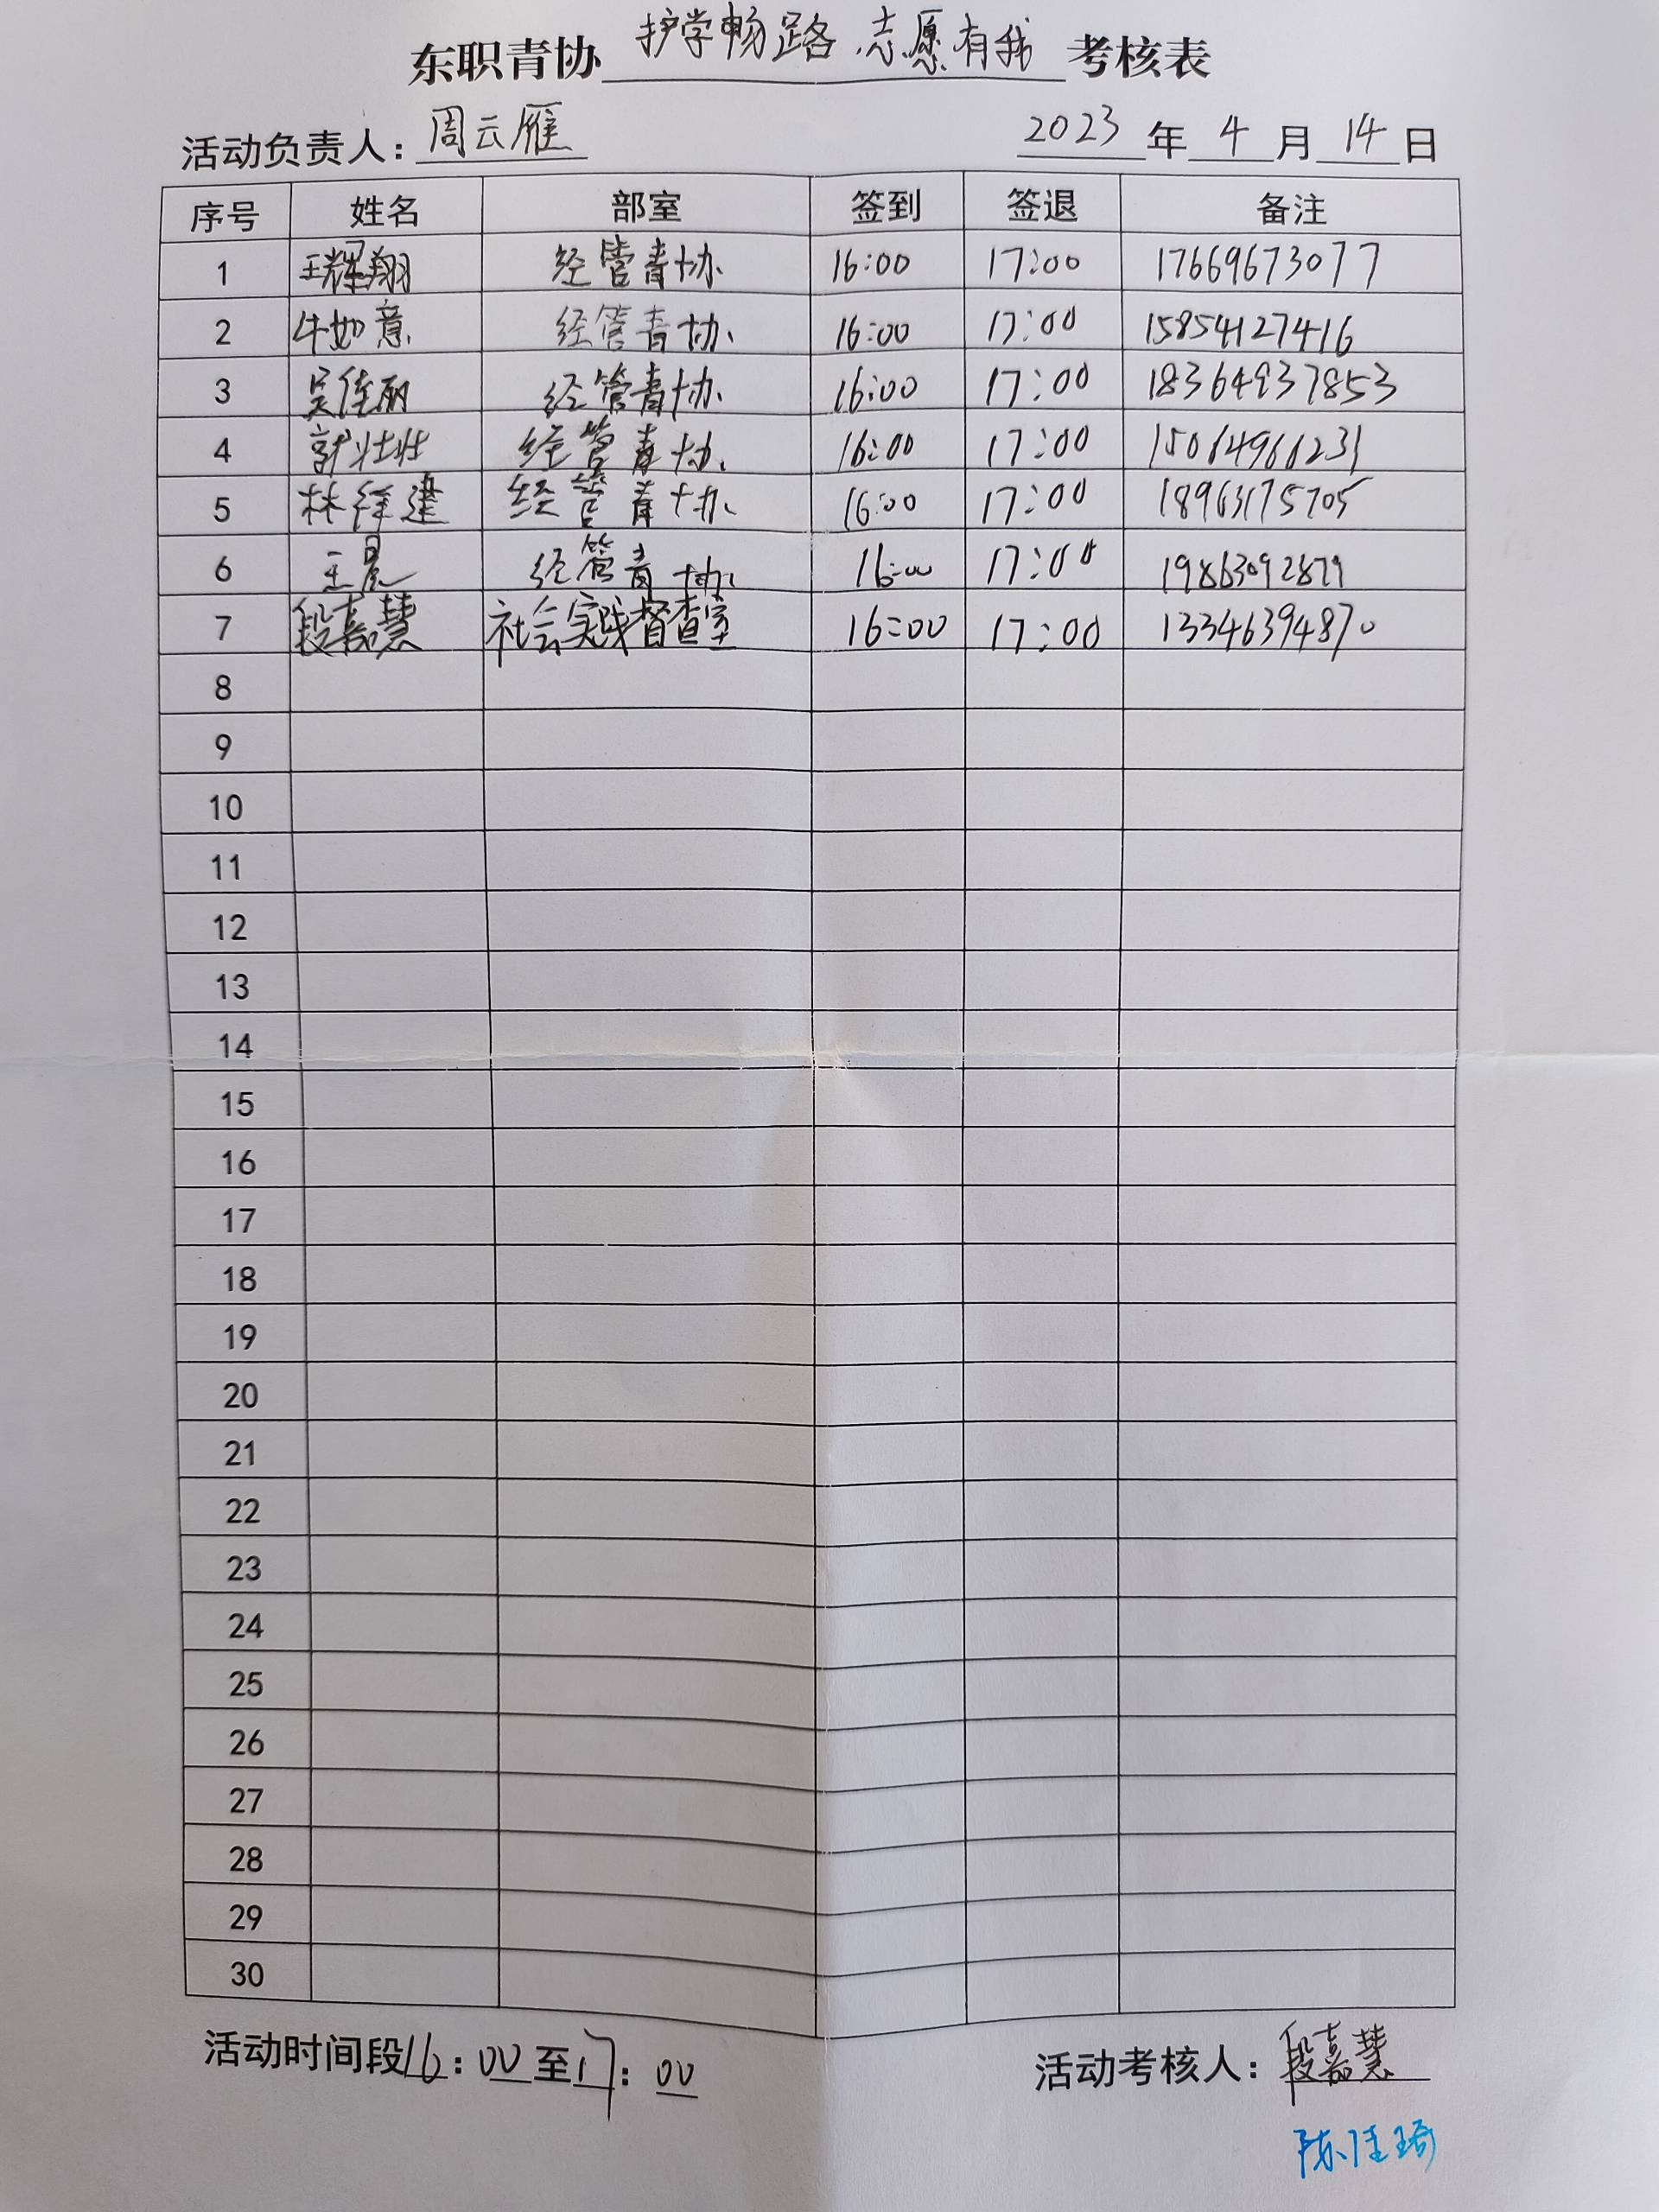 东职青协 护学畅路 志愿有我 考核表
活动负责人：周云雁 2023 年 4 月 14 日
序号 姓名 部室 签到 签退 备注
1 王耀翔 经管青协 16:00 17:00 17669673077
2 牛如意 经管青协 16:00 17:00 15854127416
3 吴佳丽 经管青协 16:00 17:00 18364937853
4 壮壮 经管青协 16:00 17:00
5 林 经管青协 16:00 17:00 18963175705
6 王晨 经管青协 16:00 17:00 19863092879
7 段嘉慧 社会实践督查室 16:00 17:00 13346394870
8
9
10
11
12
13
14
15
16
17
18
19
20
21
22
23
24
25
26
27
28
29
30
活动时间段16：00至17：00 活动考核人：段嘉慧
陈佳琦